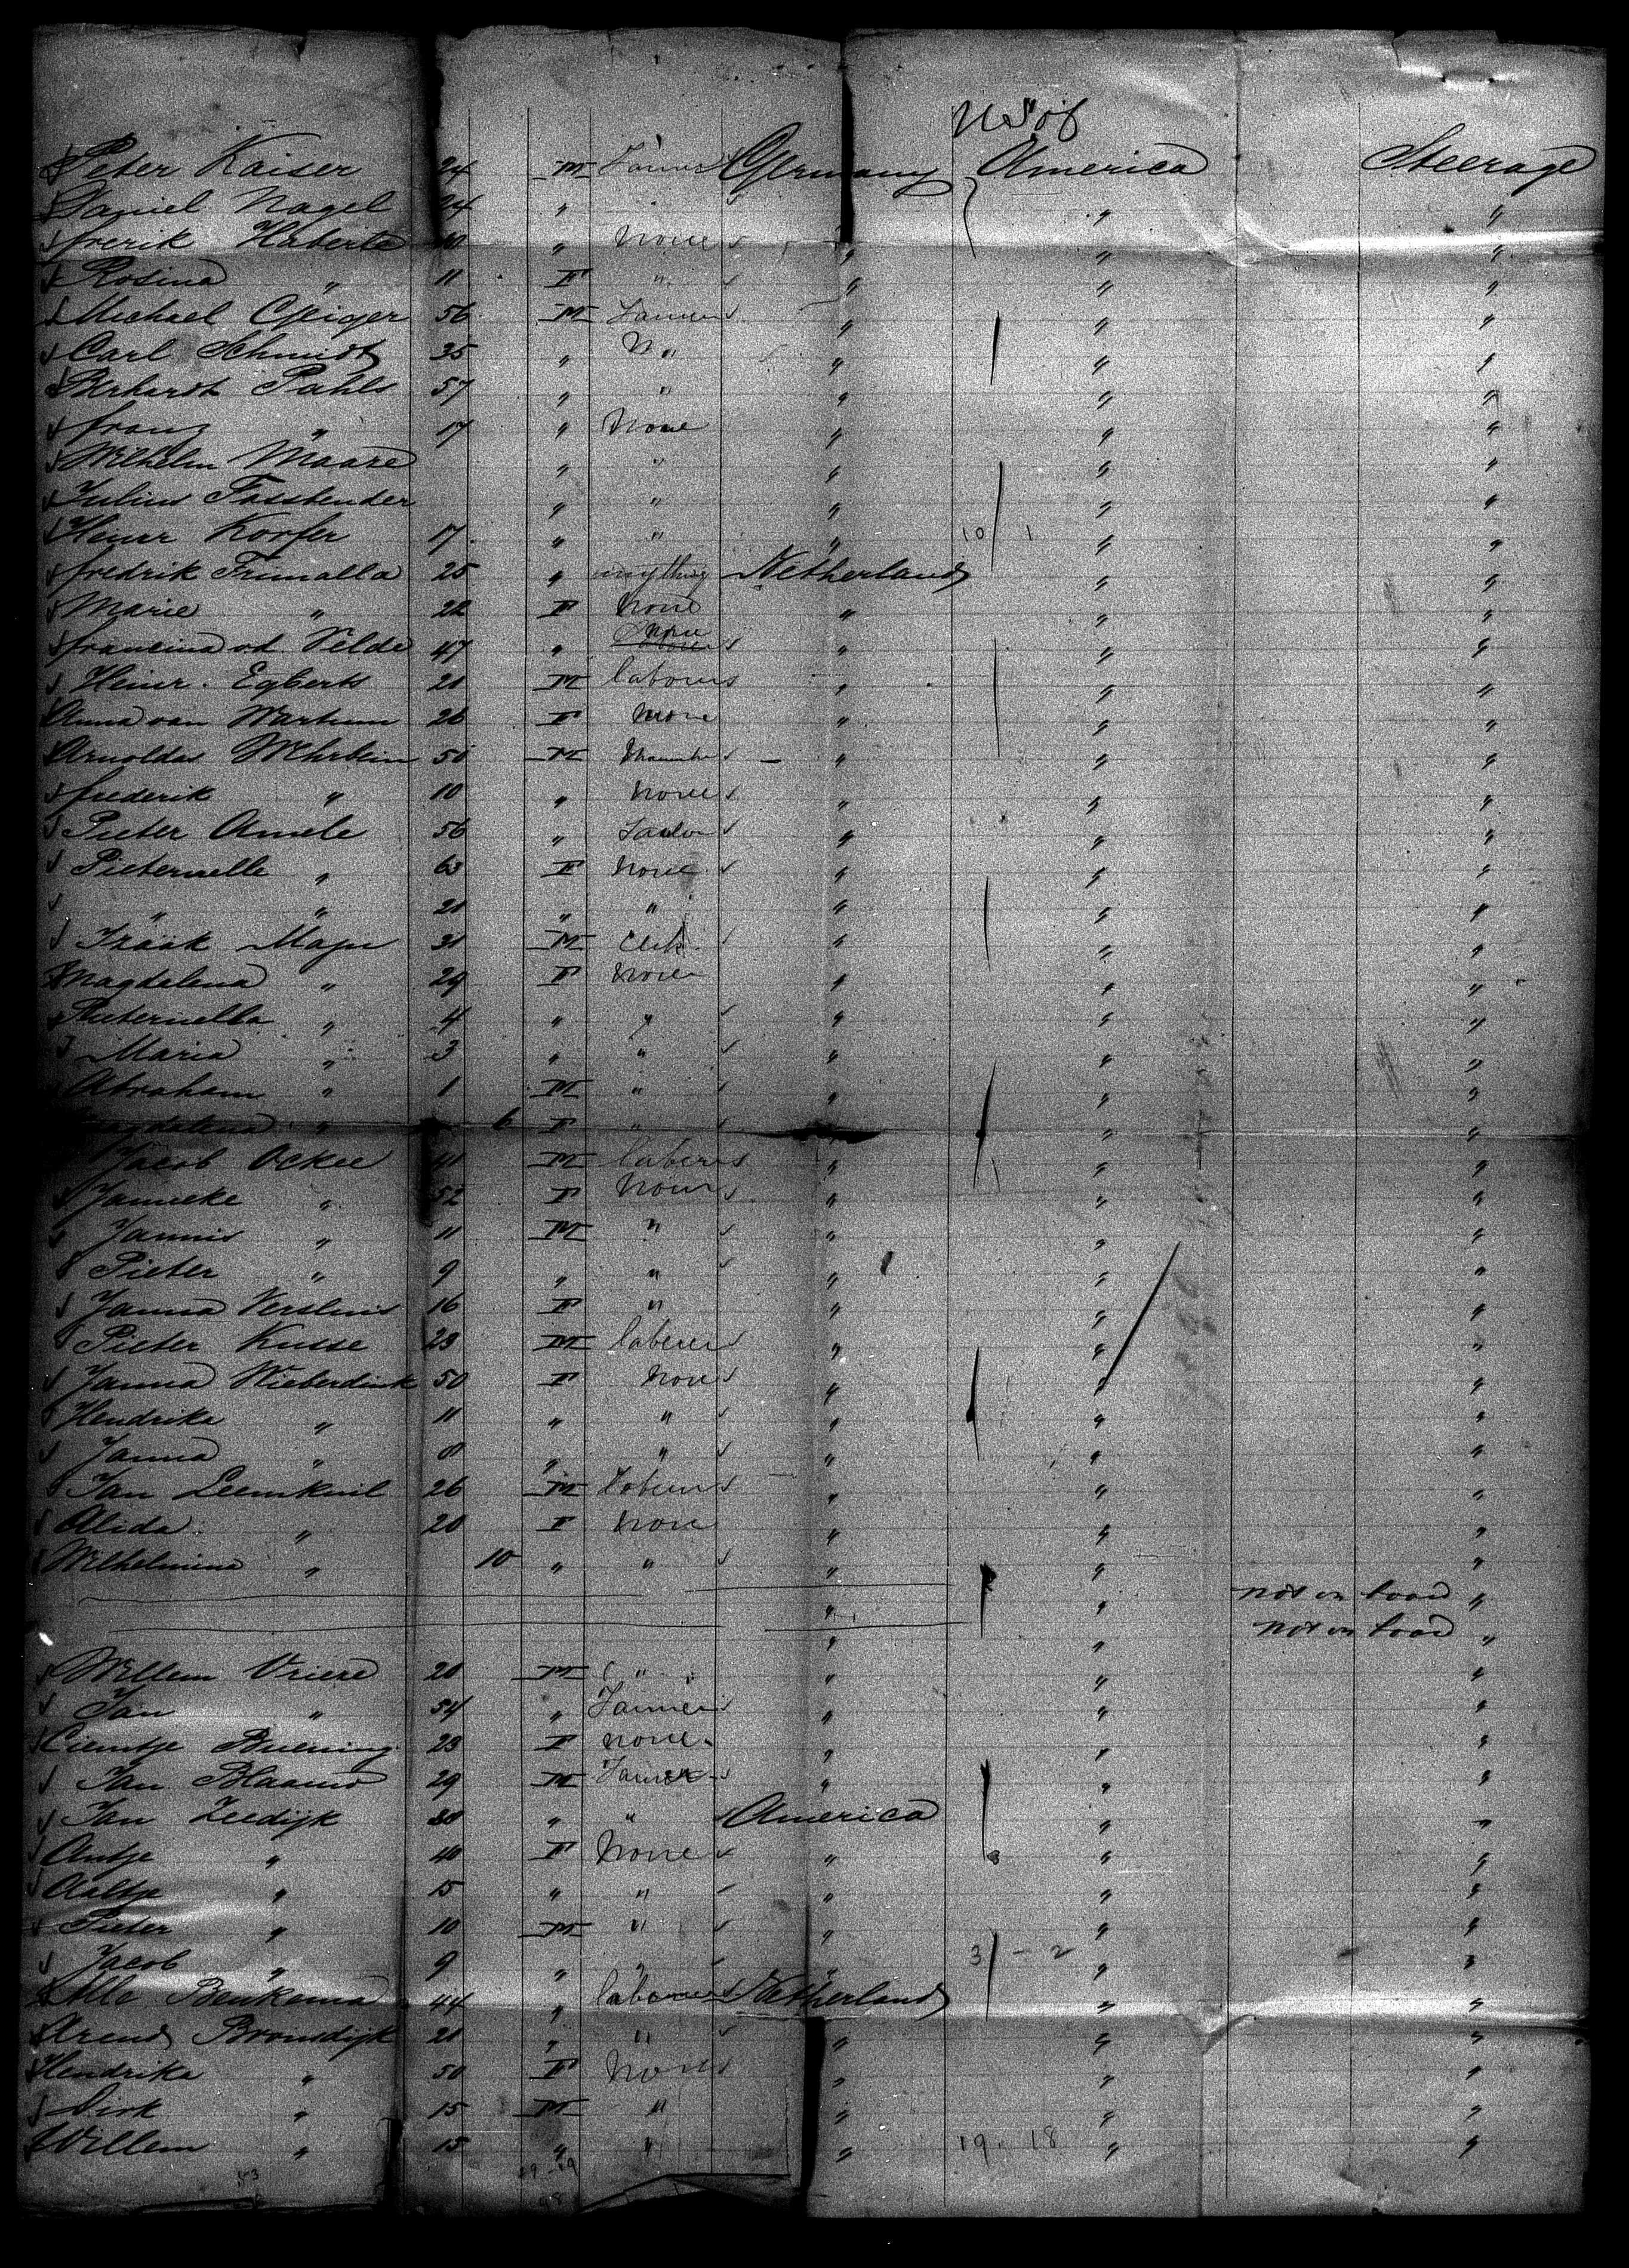 U S of
Peter Kaiser 24 M Farmer Germany America Steerage
Daniel Nagel 24 " " " "
Frerik Huberta " None " " "
Rosina " 11 F " " " "
Michael Geiger 56 M Farmer " " "
Carl Schmidt 35 " " " " "
Erhardt Pahls 57 " " " " "
Franz " 17 " None " " "
Wilhelm Maase " " " " "
Julius Fassbender " " " " "
Heinr Korfer 17 " " " 10/1 " "
Fredrik Frumalla 25 " anything Netherland " "
Marie " 22 F None " " "
Francina vd Velde 47 " None " " "
Heinr. Egberts 20 M labourer " " "
Anna van Wartum 26 F None " " "
Arnoldus Wehrbein 50 M " " "
Frederik " 10 " None " " "
Pieter Amele 56 " Tailor " " "
Pieternelle " 63 F None " " "
" " 20 " " " " "
Izaak Majer 31 M Clerk " " "
Magdalena " 29 F None " " "
Pieternella " 4 " " " " "
Maria " 3 " " " " "
Abraham " 1 M " " " "
Magdalena " 6 F " " " "
Jacob Ockee 41 M laberer " " "
Janneke " 52 F None " " "
Jannis " 11 M " " " "
Pieter " 9 " " " " "
Janna Versluis 16 F " " " "
Pieter Kusse 23 M laberer " " "
Janna Wieberdink 50 F None " " "
Hendrika " 11 " " " " "
Janna " 8 " " " " "
Jan Leemkuil 26 M " " "
Alida " 20 F None " " "
Wilhelmina " 10 " " " " "
" " not on board "
" " not on board "
Willem Vrieze 20 M " " " "
Jan " 54 " Farmer " " "
Cientje Buening 23 F None " " "
Jan Blaauw 29 M Farmer " " "
Jan Zeedijk 38 " " America " "
Antje " 40 F None " " "
Aaltje " 15 " " " " "
Pieter " 10 M " " " "
Jacob " 9 " " " 3/-2 " "
Alle Beukema 44 " labourer Netherland " "
Arend Bronsdijk 20 " " " " "
Hendrika " 50 F None " " "
Dirk " 15 M " " " "
Willem " 15 " " " 19. 18 " "
53 29-19